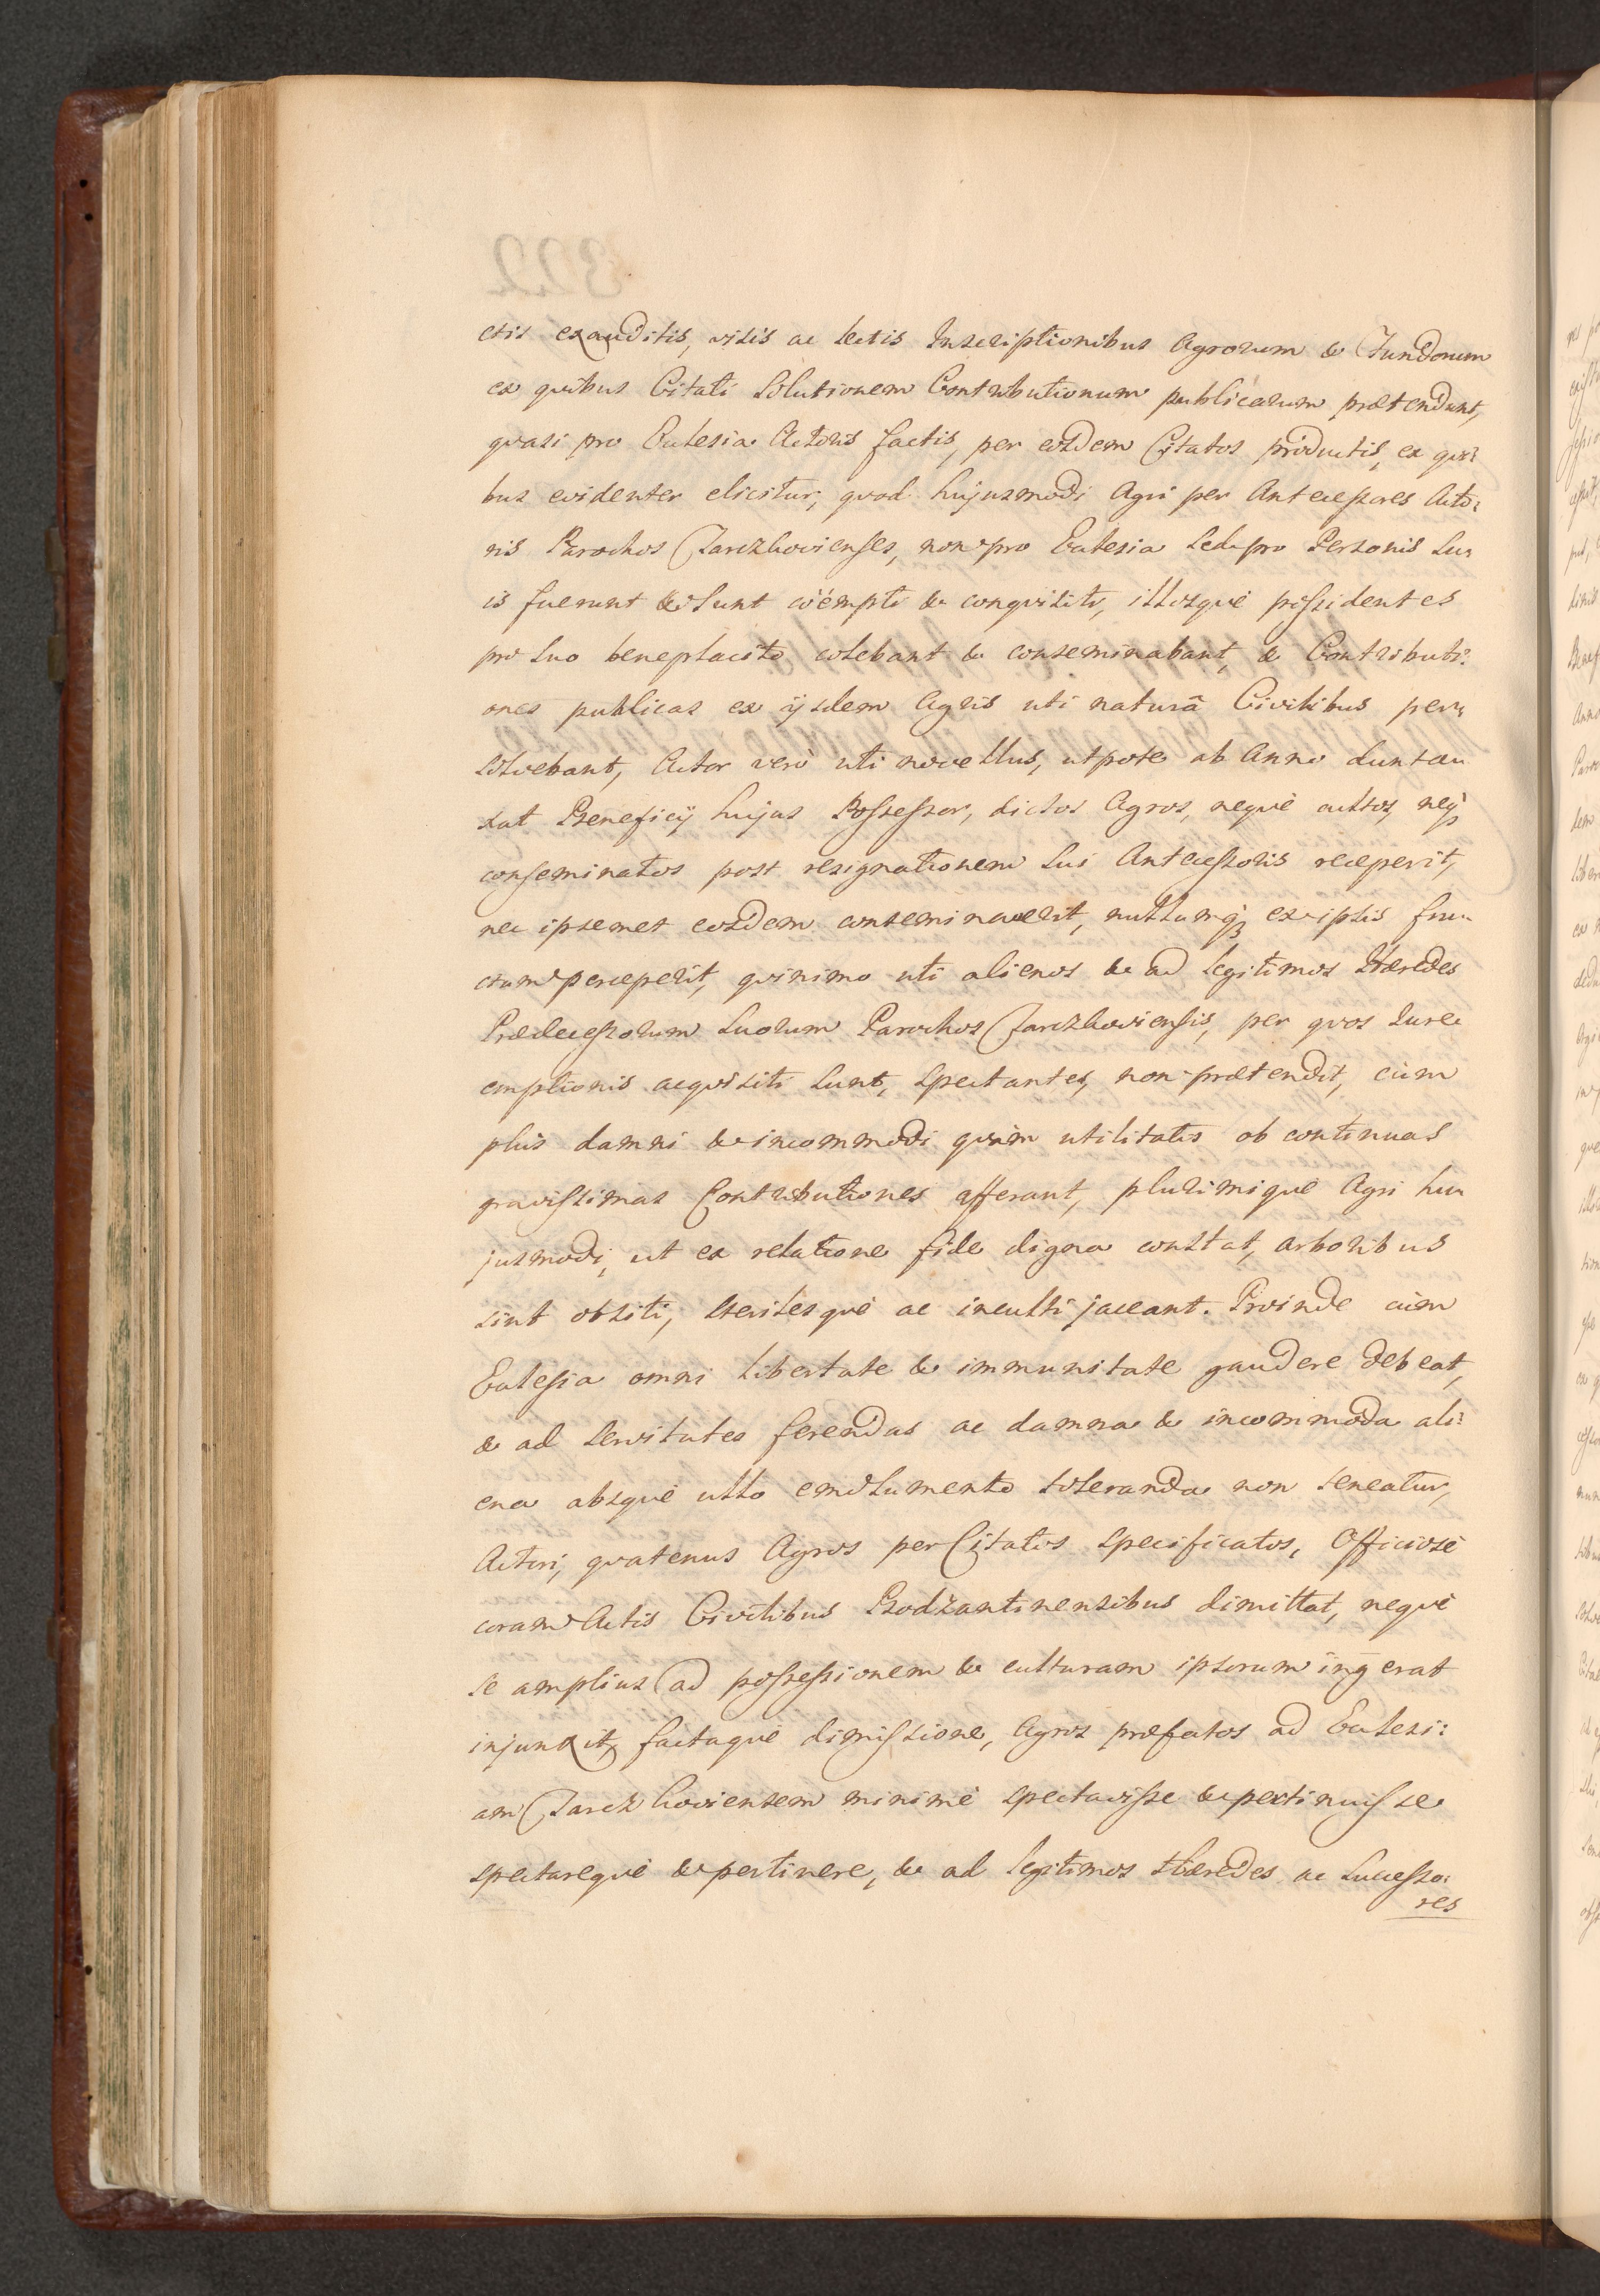 ctis exauditis, visis ac lectis Inscriptionibus Agrorum & Fundorum
ex quibus Citati Solutionem Contributionum publicarum prætendunt,
quasi pro Ecclesia Actoris factis, per eosdem Citatos productis, ex qui:
bus evidenter elicitur, quod hujusmodi Agri per Antecessores Acto:
ris Parochos Jarczhovienses, non pro Ecclesia sed pro Personis su:
is fuerunt & sunt coëmpti & conquisiti, illosquè possidentes
pro suo beneplacito colebant & conseminabant, & Contributi:
ones publicas ex ijsdem Agris uti naturâ Civilibus per:
solvebant, Actor verò uti novellus, utpote ab Anno dunta:
xat Beneficij hujus Possessor, dictos Agros, nequè cultos, neq;
conseminatos post resignationem sui Antecessoris receperit,
nec ipsemet eosdem conseminaverit, nullumq; ex ipsis fru:
ctum perceperit, quinimo uti alienos & ad legitimos Hæredes
Prædecessorum suorum Parochos Jarczhoviensis, per quos Jure
emptionis acquisiti sunt, spectantes, non prætendit, cùm
plus damni & incommodi quàm utilitatis ob continuas
gravissimas Contributiones afferant, plurimiquè Agri hu:
jusmodi, ut ex relatione fide digna constat, arboribus
sint obsiti, sterilesquè ac inculti jaceant. Proinde cùm
Ecclesia omni libertate & immunitate gaudere debeat,
& ad servitutes ferendas ac damna & incommoda ali:
ena absquè ullo emolumento toleranda non teneatur,
Actori, quatenus Agros per Citatos specificatos, Officiosè
coram Actis Civilibus Bodzantinensibus dimittat, nequè
se amplius ad possessionem & culturam ipsorum ingerat
injunxit, factaquè dimissione, Agros præfatos ad Ecclesi:
am Jarczhoviensem minimè spectavisse & pertinuisse
spectarequè & pertinere, & ad legitimos Hæredes ac Successo:
res